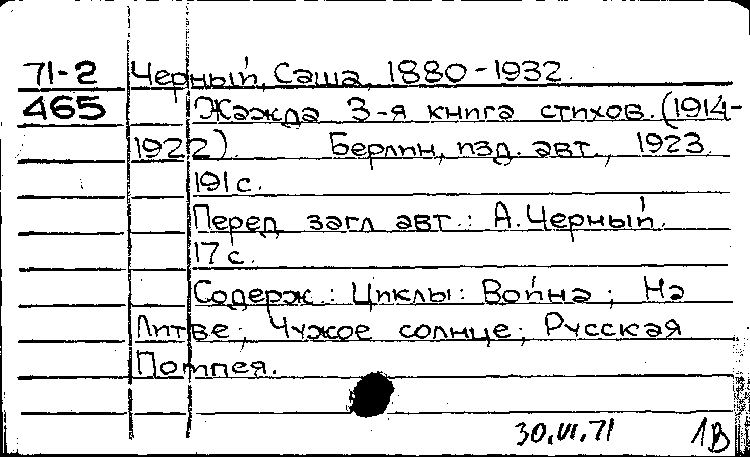 71-2 Черный, Саша, 1880-1932.
465 Жажда 3-я книга стихов. (1914-
1922). Берлин, изд. авт., 1923.
191 с.
Перед загл авт.: А. Черный.
17 с.
Содерж.: Циклы: Война; На
Литве; Чужое солнце; Русская
Помпея.
30.VI.71 1В